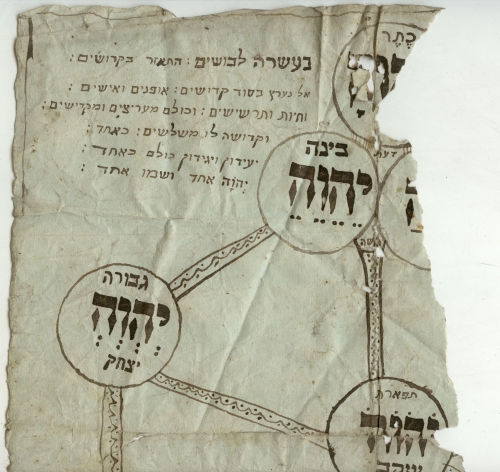 כתר
בעשרה לבושים: התאזר בקדושים:
אל נערץ בסוד קדושים: אופנים ואישים:
וחיות ותרשישים: וכולם מעריצים ומקדישים:
וקדושה לו משלשים: כאחד:
יעידון ויגידון כולם כאחד:
יהוה אחד ושמו אחד:
בינה
יֵהֵוֵהֵ
דעת
גבורה
יְהְוְהְ
יצחק
תפארת
יהוה
יעקב